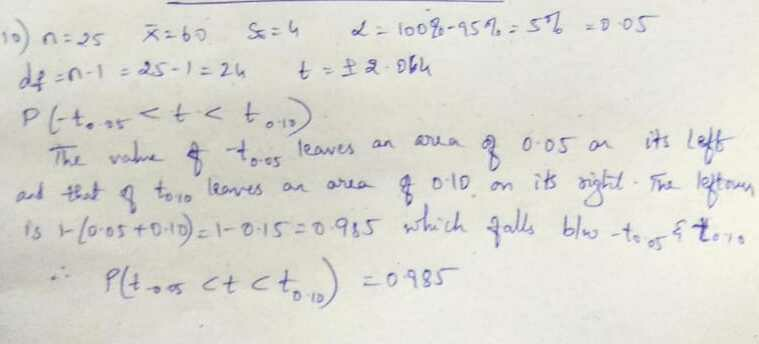 10) n=25 x̄=60 Sx=4 α=100%-95%=5% =0.05
df=n-1 =25-1=24 t=±2.064
P(-t0.05 < t < t0.10)
The value of -t0.05 leaves an area of 0.05 on its left
and that of t0.10 leaves an area of 0.10 on its right. The leftover
is 1-(0.05+0.10)=1-0.15=0.985 which falls b/w -t0.05 & t0.10
∴ P(t-0.05 <t<t0.10) =0.985